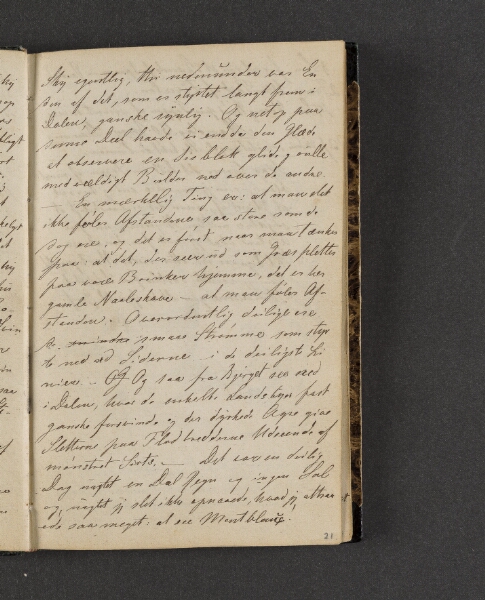 Skÿ egentlig, thi nedenunder var En
den af det, som er styrtet langt frem i
Dalen, ganske synlig. Og netop paa
samme Deel havde vi endda den Glæde
at observere en Iisblok glide og rulle
med vældigt Bulder ned over de andre.
— En mærkelig Ting er: at man slet
ikke føler Afstandene saa store som de
dog ere, og det er først naar man tænker
paa: at det, der seer ud som Græspletter
paa vore Brinker hjemme, det er her
gamle Naaleskove — at man føler Af-
standen. Overordentlig deilige ere
de smaa Strømme som styr
te ned ad Siderne i de deiligste Li
nier. — Og saa fra Bjerget see ned
i Dalen, hvor de enkelte Landskaber fast
ganske forsvinde og der dyrkede Agre give
Sletterne paa Flodbredderne Udseende af
mønstret Sirts. — Det var en deilig
Dag uagtet en Deel Regn og ingen Sol
og uagtet vi slet ikke opnaaede, hvad vi attraa
ede saa meget: at see Montblanc.
21